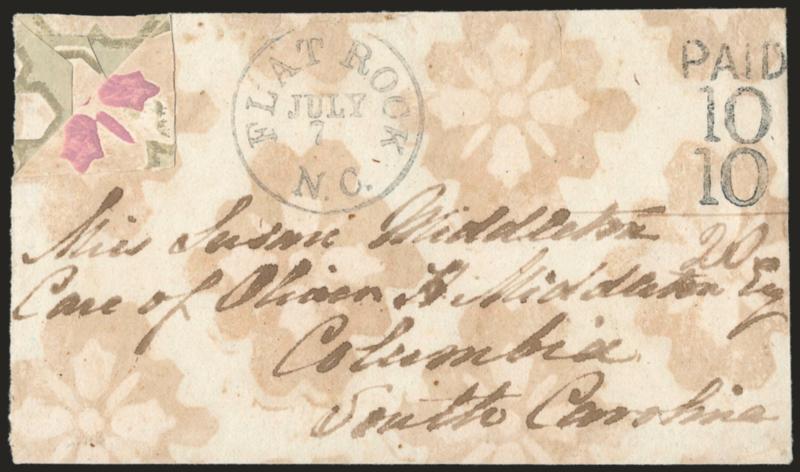 FLAT ROCK
JULY
7
N.C.
PAID
10
10
20
Miss Susan Middleton
Care of Oliver H. Middleton Esq
Columbia
South Carolina